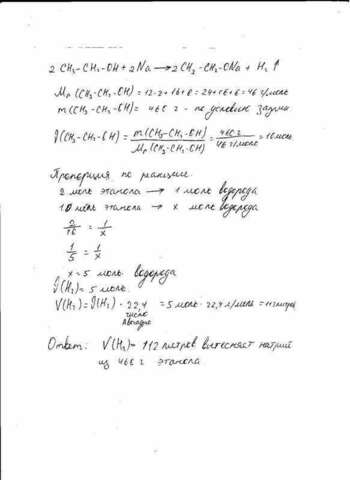 2 CH₃-CH₂-OH + 2Na → 2CH₃-CH₂-ONa + H₂ ↑
Mr (CH₃-CH₂-OH) = 12·2+16+6 = 24+16+6 = 46 г/моль
m(CH₃-CH₂-OH) = 460 г - по условию задачи
ν(CH₃-CH₂-OH) = m(CH₃-CH₂-OH) / Mr(CH₃-CH₂-OH) = 460 г / 46 г/моль = 10 моль
Пропорция по реакции:
2 моль этанола → 1 моль водорода
10 моль этанола → x моль водорода
2/10 = 1/x
1/5 = 1/x
x = 5 моль водорода
ν(H₂) = 5 моль
V(H₂) = ν(H₂) · 22,4 = 5 моль · 22,4 л/моль = 112 литров
число
Авогадро
Ответ: V(H₂) = 112 литров вытесняет натрий
из 460 г этанола.